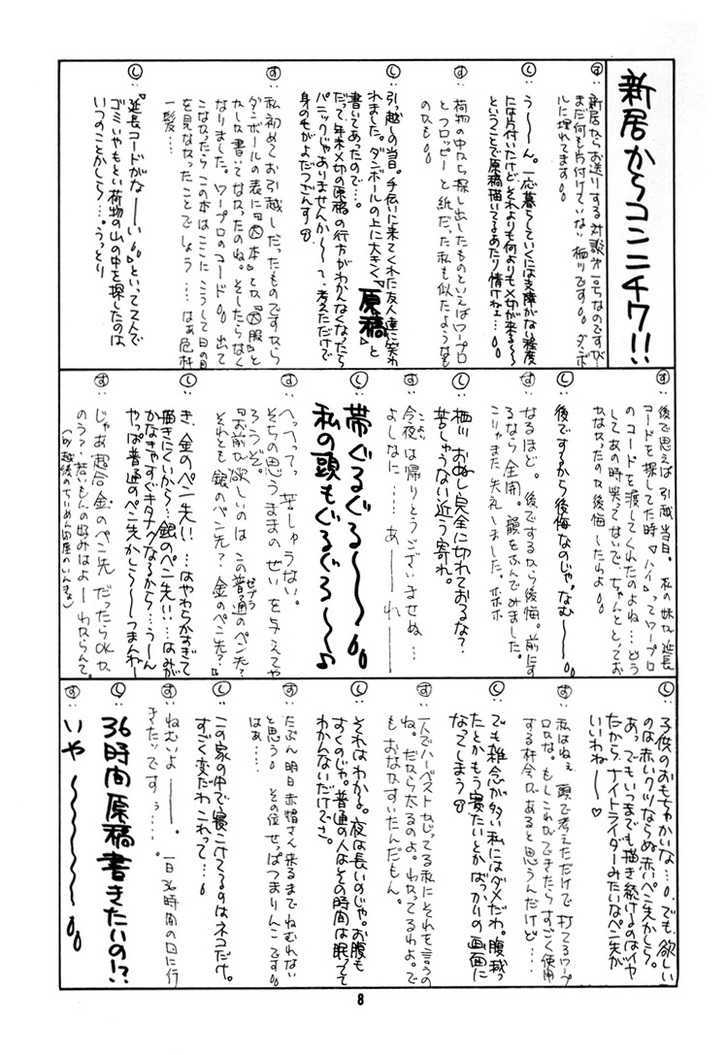 新居からコンニチワ!!
す:新居からお送りする対談が一こちなのですが…
まだ何も片付けていない栖ッです。ダンボー
ルに埋れてます。
し:う〜〜ん。一応暮らしていくには支障がない程度
には片付いたけどそれよりも何よりも〆切が来る〜〜
ということで原稿描いてるあたり情けねェ…。
す:荷物の中から探し出したものといえばワープロ
とフロッピーと紙だった私も似たようなも
のかも
し:引っ越しの当日。手伝いに来てくれた友人達に笑わ
れました。ダンボールの上に大きく『原稿』と
書いてあったので…。
だって年末〆切の原稿の行方がわかんなくなったら
パニックじゃありませんか〜〜て、考えただけで
身の毛がよだつざんす
す:私初めてお引越しだったものですから
ダンボールの表に『本』とか『服』と
かしか書いてなかったのね。そしたらなく
なりました。ワープロのコード。出て
こなかったらこの本はここにこうして日の目
を見なかったことでしょう…はぁ危機
一髪…
し:『延長コードがな――い』といってスんで
ゴミいやもとい荷物の山の中を探したのは
いつのことかしら…。うっとり
す:後で思えば引越し当日。私の妹が延長
コードを探してた時『ハイ』ってワープロ
のコードを渡してくれたのよね…どう
してあの時笑ってないで、ちゃんととってお
かなかったのか後悔したわよ
し:後でするから後悔なのじゃ。なむ――――
す:なるほど。後でするなら後悔。前にす
るなら全開。韻をふんでみました。
こりゃまた失礼しました。ホホホ
し:栖ッ おぬし完全に切れておるな?
苦しゅうない近う寄れ。
す:今夜は帰りとうございませぬ…
よしなに…。あ――れ――
し:帯ぐるぐる〜〜〜
私の頭もぐるぐる〜〜♪
す:へっへっへっ 苦しゅうない。
そちの思うままのぜいを与えてや
ろうぞ。
『お前が欲しいのはこの普通のペン先?
それとも銀のペン先?金のペン先?』
し:き、金のペン先!…はやわらかすぎて
描きにくいから…銀のペン先!!…はみが
かなきゃすぐキタナクなるから…う〜ん
やっぱ普通のペン先かしら〜〜つまんねー
す:じゃあ超合金のペン先だったらOKな
のう?若いもんの好みはよ――わからんて。
(by越後のちりめん問屋のいんきょ)
し:子供のおもちゃかいな…。でも欲しい
のは赤いクツならぬ赤いペン先かしら。
あっ でもいつまでも描き続けるのはイヤ
だからナイトライダーみたいなペン先が
いいわね――♡
す:私はねぇ 頭で考えただけで打てるワープ
ロかな。もしこれができたらすごく使用
する料金かなあると思うんだけど……
し:でも雑念が多い私にはダメだわ。腹減っ
たとかもう寝たいとかばっかりの画面に
なってしまう
す:一人でハーベストかじってる私にそれを言うの
ね。だから太るのよ。わかってるわよ。で
もおなかすいたんだもん。
し:それはわかる。夜は長いのじゃ。お腹も
すくのじゃ。普通の人はその時間は眠ってて
わかんないだけでさ。
す:たぶん明日赤帽さん来るまでねむれない
と思う。その位せっぱつまりんこです。
はぁ…
し:この家の中で寝こけてるのはネコだけ。
すごく変だわ これって…。
す:ねむいよ――――。一日36時間の国に行
きたいですう……。
し:36時間原稿書きたいの!?
す:いや〜〜〜〜
8